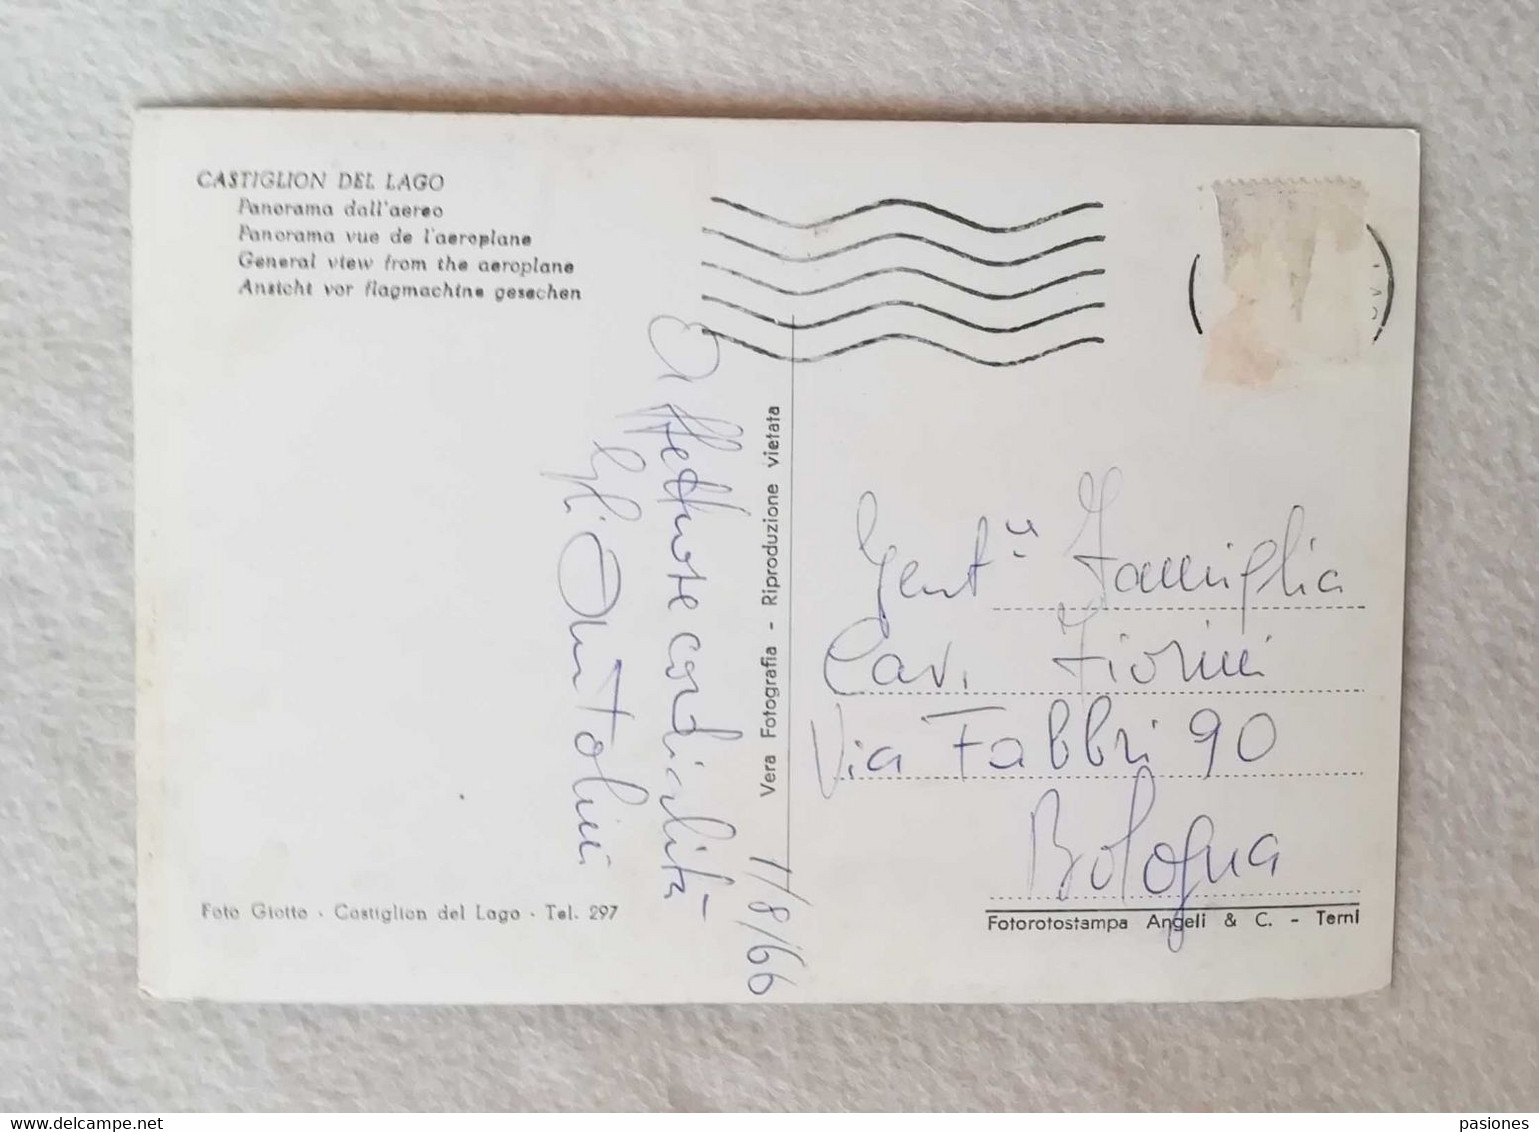 CASTIGLION DEL LAGO
Panorama dall'aereo
Panorama vue de l'aeroplane
General view from the aeroplane
Ansicht vor flagmachine gesechen
Affettuose cordialità
Gli Antolini
1/8/66
Vera Fotografia - Riproduzione vietata
Gent.ª Famiglia
Cav. Fiorini
Via Fabbri 90
Bologna
Foto Giotto - Castiglion del Lago - Tel. 297
Fotorotostampa Angeli & C. - Terni
delcampe.net
pasiones